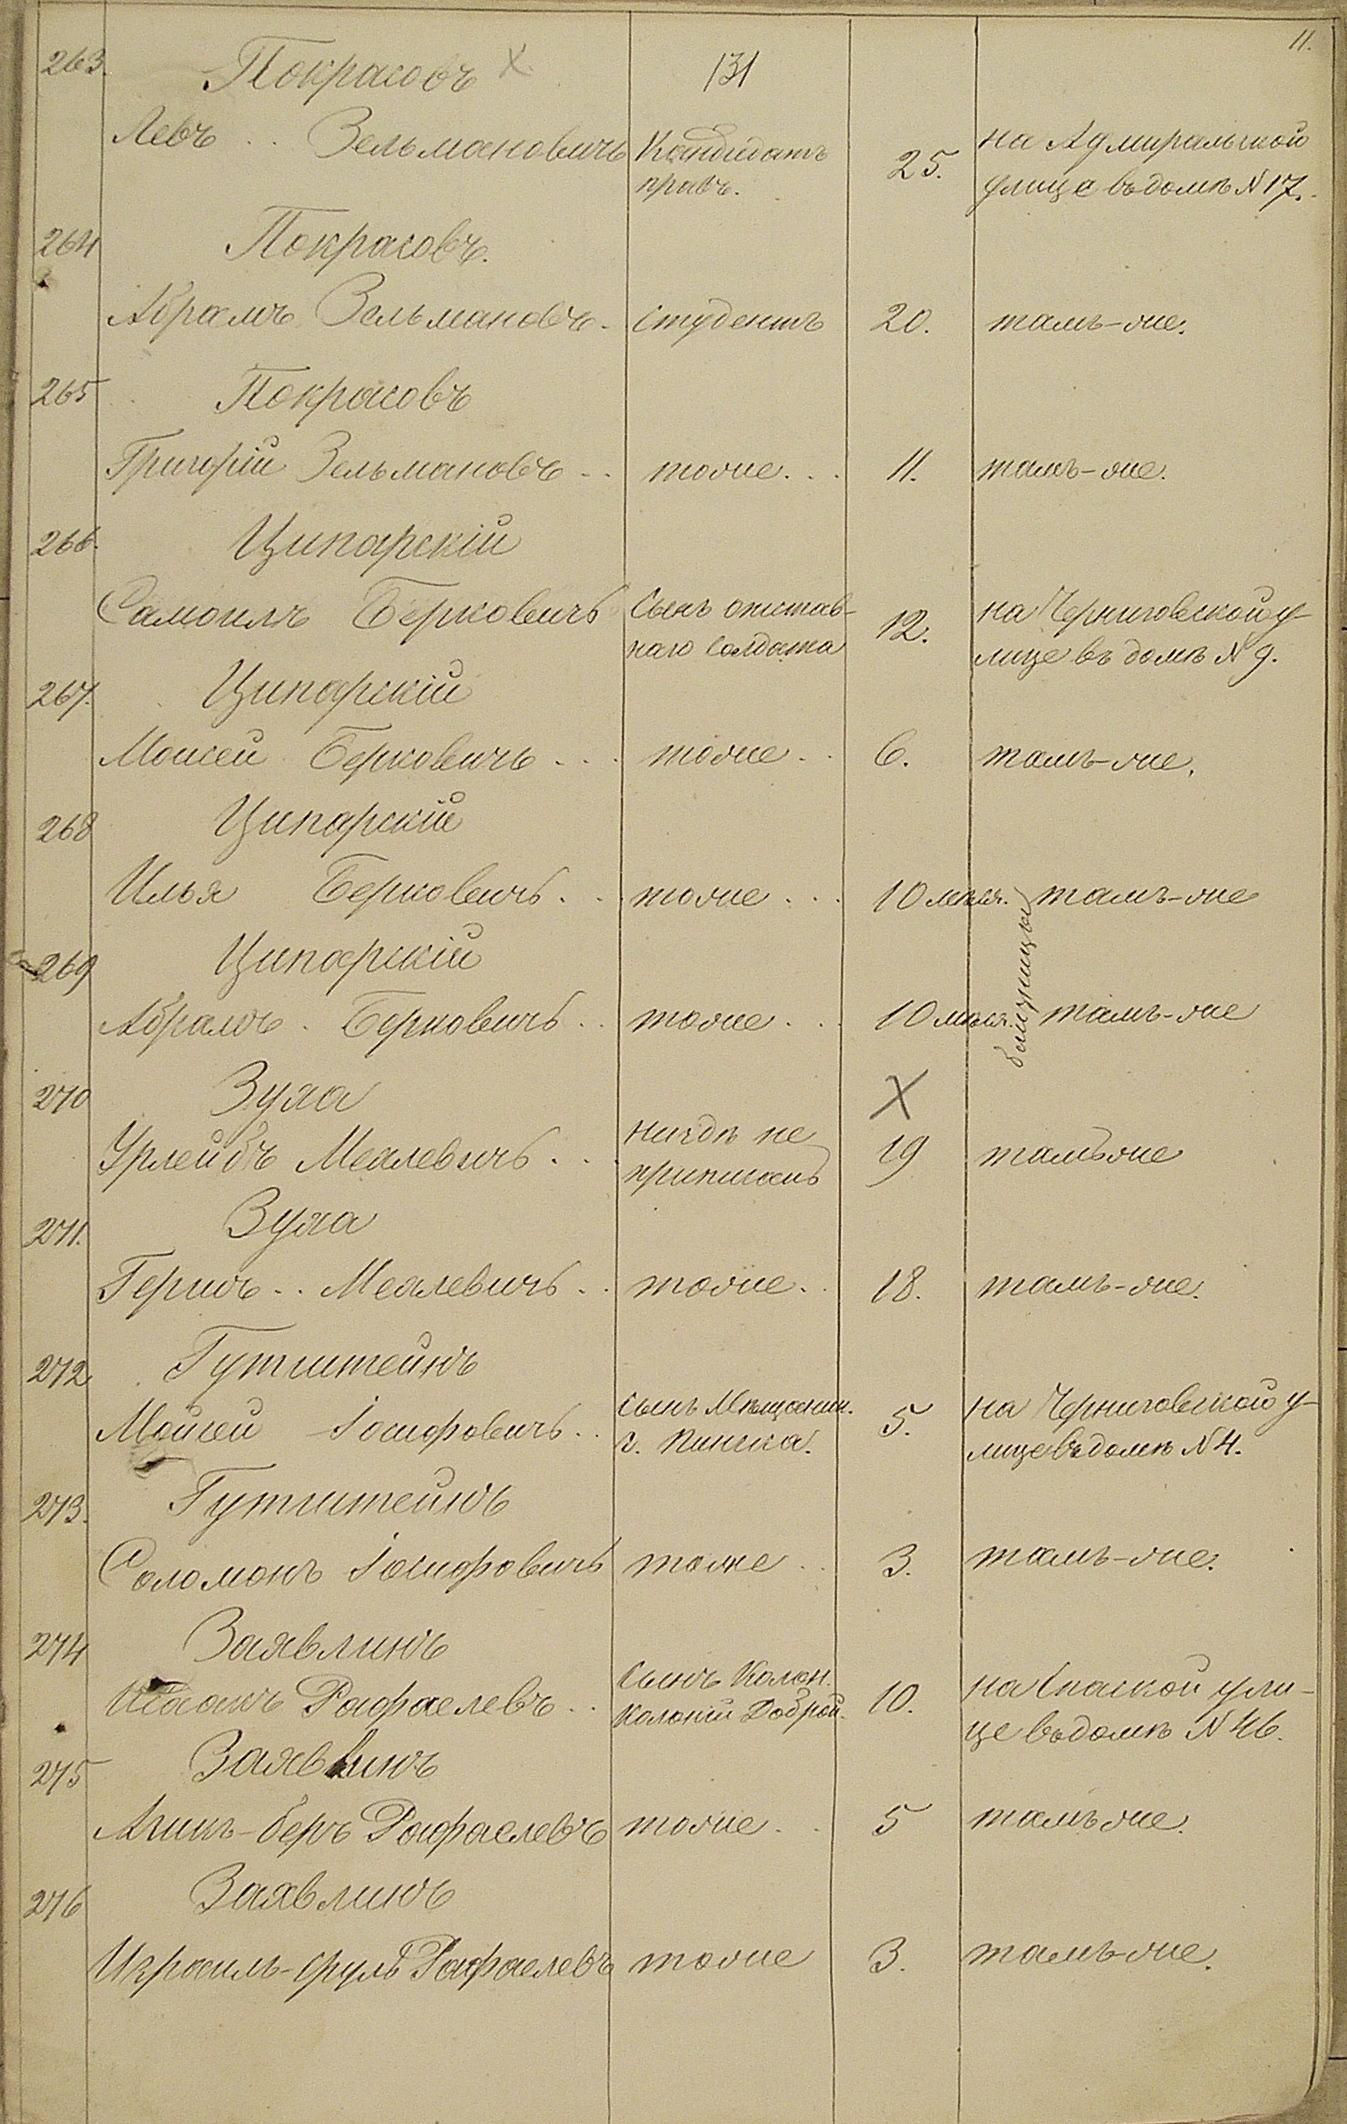 11.
263. Покрасовъ X 131
Левъ .. Зельмановичъ Кандидатъ 25. на Адмиральской
правъ. улице въ домѣ N 17.
264 Покрасовъ.
Абрамъ Зельмановъ. студентъ 20. тамъ-же.
265 Покрасовъ
Григорій Зельмановъ .. тоже... 11. тамъ-же.
266. Ципарскій
Самоилъ Берковичъ Сынъ отстав- 12. на Черниговской у-
наго солдата лице въ домѣ N 9.
267. Ципарскій
Моисей Берковичъ ... тоже .. 6. тамъ-же.
268 Ципарскій
Илья Берковичъ .. тоже ... 10 мѣся. тамъ-же
близницы
269 Ципарскій
Абрамъ . Берковичъ .. тоже ... 10 мѣся. тамъ-же
270 Зуха X
Меалевичъ ... нигдѣ не 19 тамъ же
приписанъ
271. Зуха
Гершъ .. Меалевичъ .. тоже .. 18. тамъ-же.
272 Гутштейнъ
Мойсей Іосифовичъ .. сынъ Мѣщанин. 5. на Черниговской у-
г. Пинска. лице въ домѣ N 4.
273. Гутштейнъ
Соломонъ Іосифовичъ тоже .. 3. тамъ-же.
274 Заявлинъ
Исаакъ Рафаелевъ .. сынъ Колон. 10. на Спаской ули-
колоніи Доброй. це въ домѣ N 46.
275 Заявлинъ
Рафаелевъ тоже .. 5 тамъ же.
276 Заявлинъ
Израиль-Сруль Рафаелевъ тоже 3. тамъ-же.